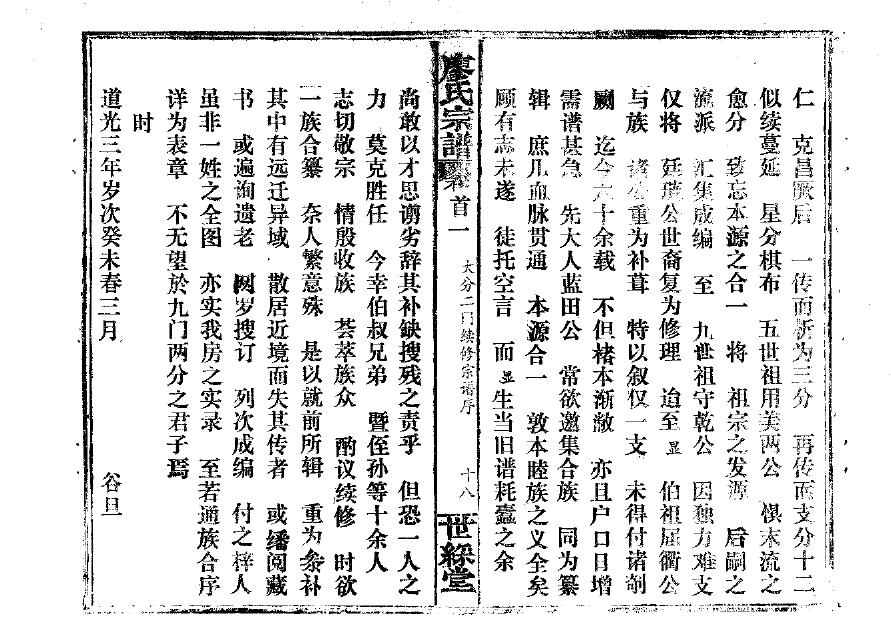 仁　克昌厥后　一传而析为三分　再传而支分十二
似续蔓延　星分棋布　五世祖用美两公　惧末流之
愈分　致忘本源之合一　将　祖宗之发源　后嗣之
流派　汇集成编　至　九世祖守乾公　因独力难支
仅将　廷璜公世裔复为修理　迨至显　伯祖屈衢公
与族　诸公重为补葺　特以叙仅一支　未得付诸剞
劂　迄今六十余载　不但楮本渐敝　亦且户口日增
需谱甚急　先大人蓝田公　常欲邀集合族　同为纂
辑　庶几血脉贯通　本源合一　敦本睦族之义全矣
顾有志未遂　徒托空言　而显生当旧谱耗蠹之余
廖氏宗谱 卷首一 大分二门续修宗谱序 十八 世綵堂
尚敢以才思谫劣辞其补缺搜残之责乎　但恐一人之
力　莫克胜任　今幸伯叔兄弟　暨侄孙等十余人
志切敬宗　情殷收族　荟萃族众　酌议续修　时欲
一族合纂　奈人繁意殊　是以就前所辑　重为参补
其中有远迁异域　散居近境而失其传者　或繙阅藏
书　或遍询遗老　网罗搜订　列次成编　付之梓人
虽非一姓之全图　亦实我房之实录　至若通族合序
详为表章　不无望於九门两分之君子焉
时
道光三年岁次癸未春三月　谷旦